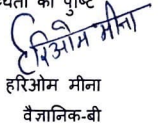 की पुष्टि
हरिओम मीना
हरिओम मीना
वैज्ञानिक-बी